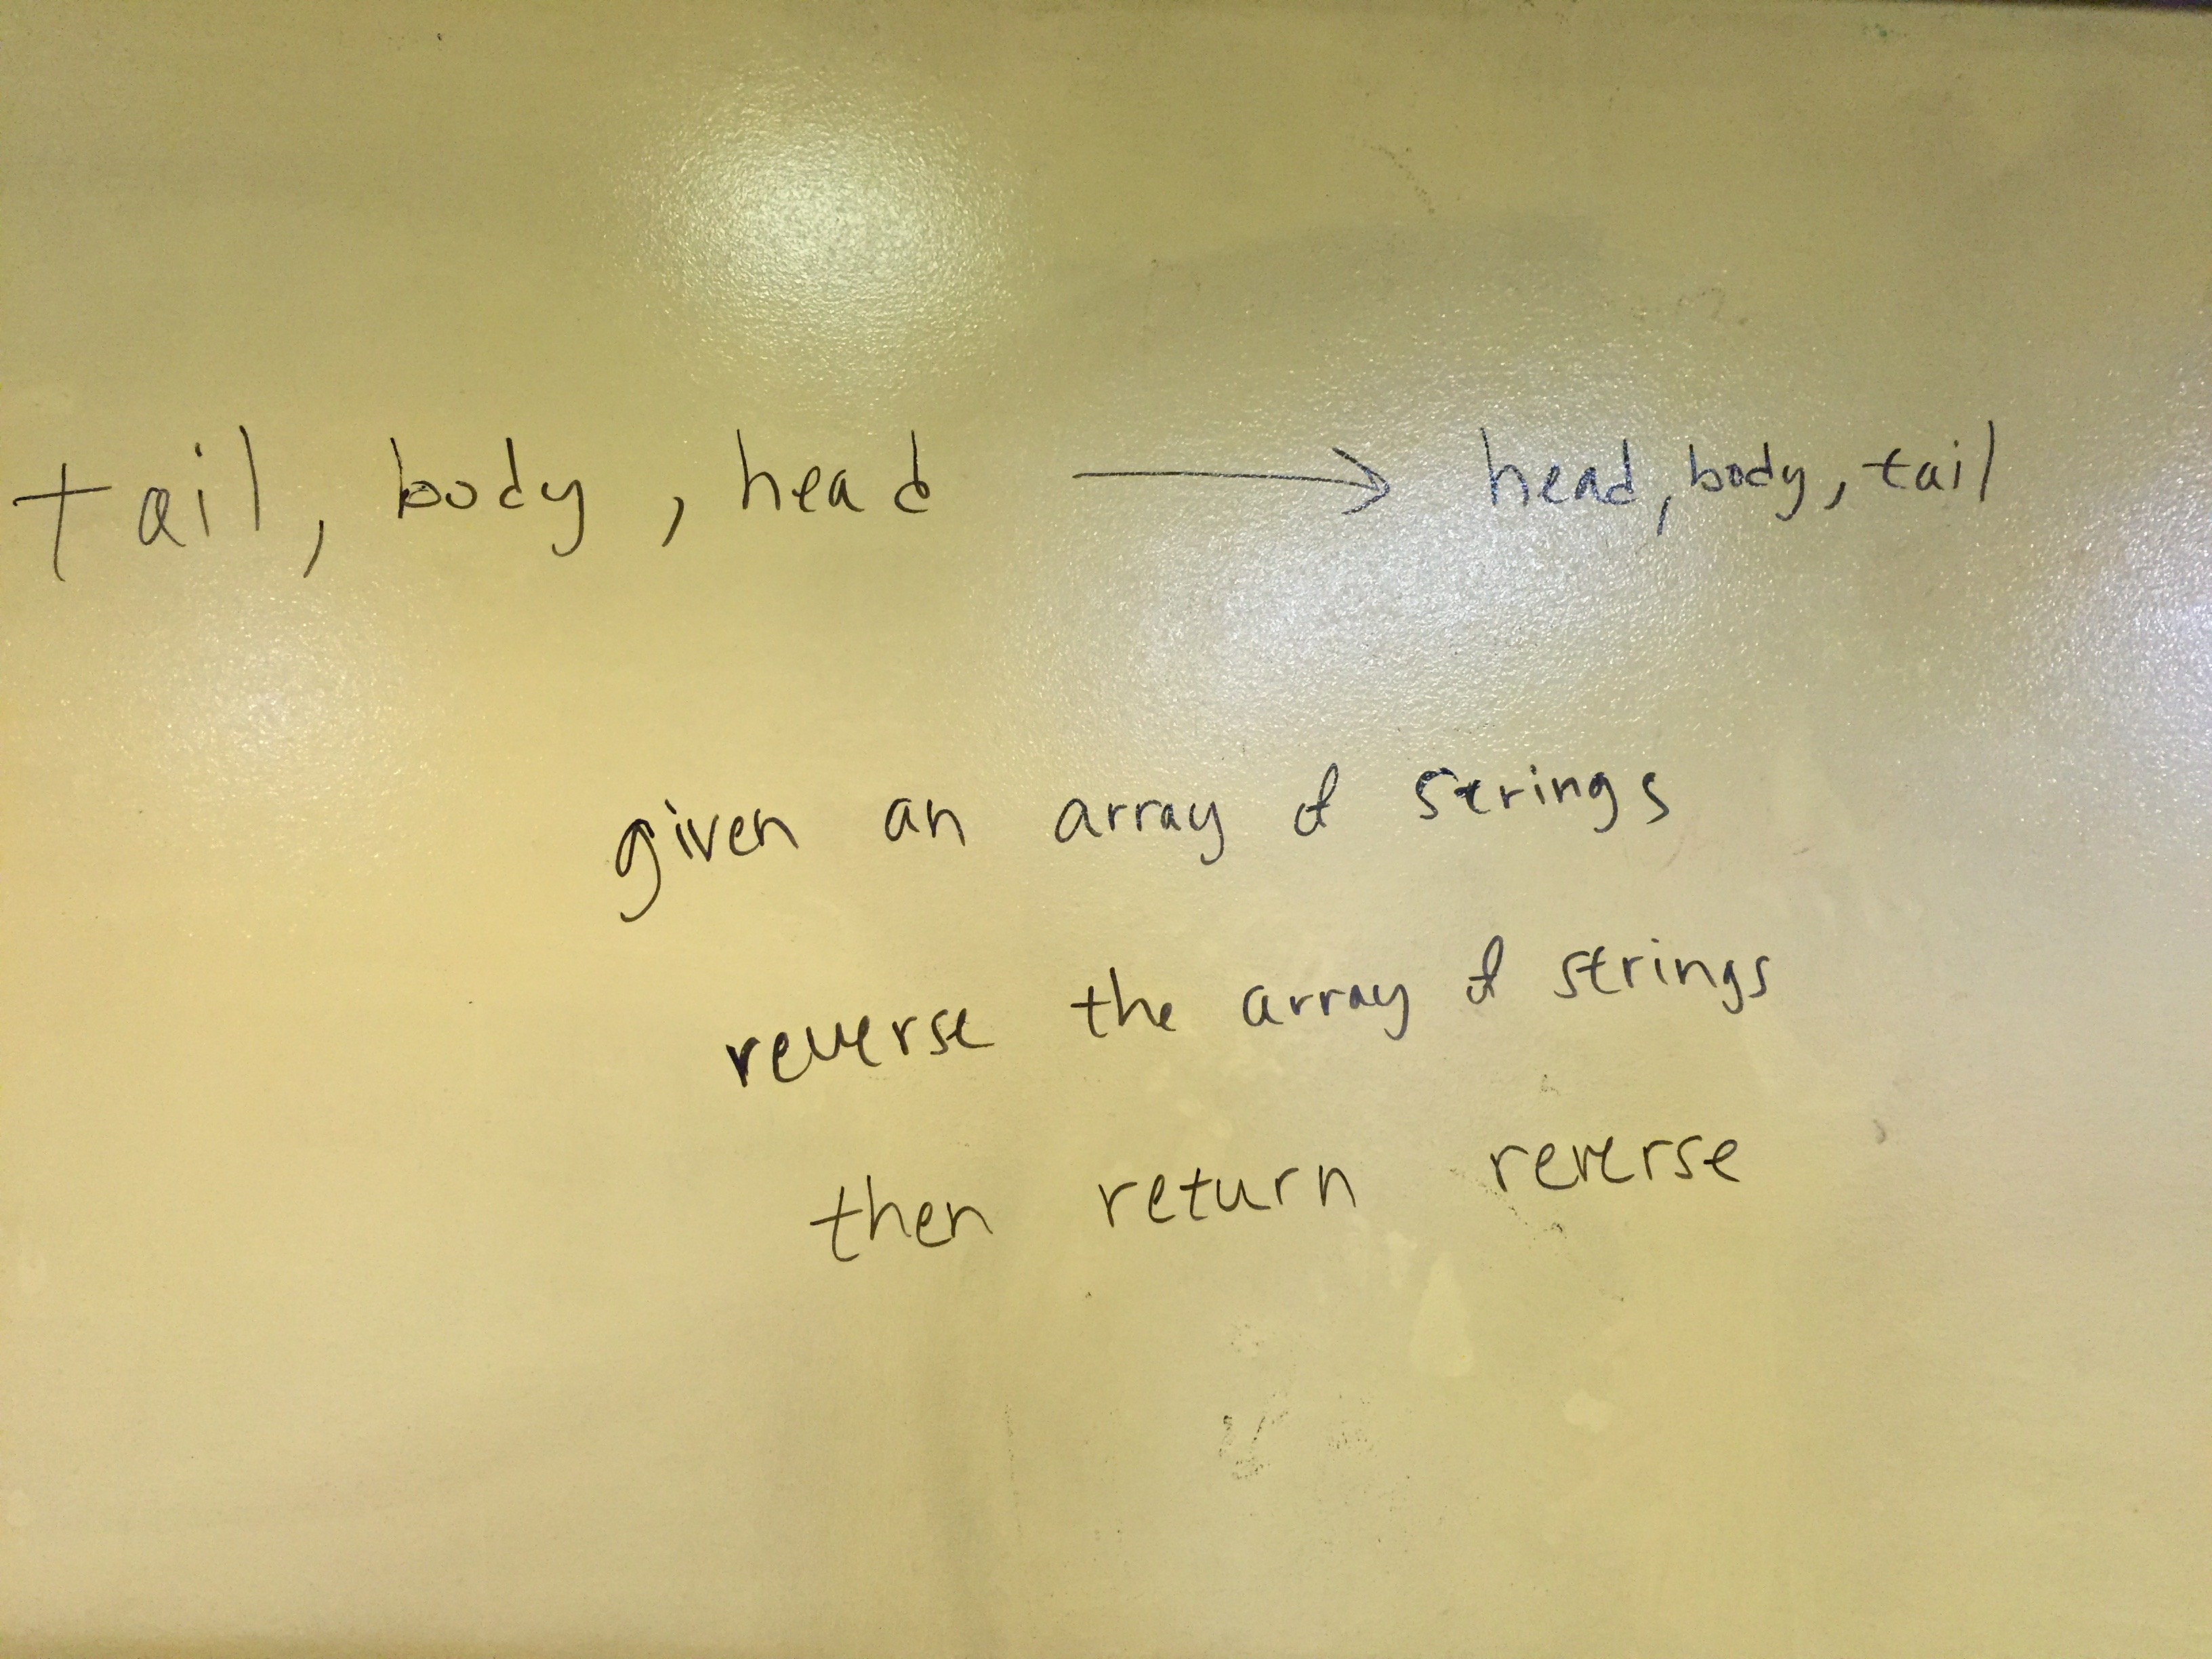 tail, body, head → head, body, tail
given an array of strings
reverse the array of strings
then return reverse